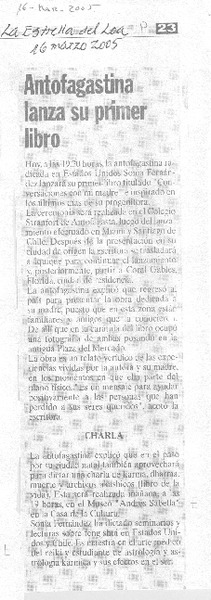 16-Mar-2005
La Estrella del Loa P 23
16 marzo 2005
Antofagastina
lanza su primer
libro
Hoy, a las 19.30 horas, la antofagastina ra-
dicada en Estados Unidos Sonia Fernán-
dez lanzará su primer libro titulado "Con-
versaciones con mi madre" e inspirado en
los últimos días de su progenitora.
La ceremonia será realizada en el Colegio
Stranford de Antofagasta, luego del lanza-
miento efectuado en Miami y Santiago de
Chile. Después de la presentación en su
ciudad de origen la escritora se trasladará
a Iquique para continuar el lanzamiento
y, posteriormente, partir a Coral Gables,
Florida, ciudad de residencia.
La antofagastina explicó que regresó al
país para presentar la obra dedicada a
su madre, puesto que en esta zona están
familiares y amigos que la conocen.
De allí que en la carátula del libro ocupó
una fotografía de ambas posando en la
antigua Plaza del Mercado.
La obra es un relato verídico de las expe-
riencias vividas por la autora y su madre,
en los momentos en que ella parte del
plano físico. "Es un mensaje para ayudar
positivamente a las personas que han
perdido a sus seres queridos", acotó la
escritora.
CHARLA
La antofagastina explicó que en el paso
por su ciudad natal también aprovechará
para dictar una charla de karma, dharma,
muerte y archivos akáshicos (libro de la
vida). Esta será realizada mañana, a las
20 horas, en el Museo "Andrés Sabella"
en la Casa de la Cultura.
Sonia Fernández ha dictado seminarios y
lecturas sobre feng shui en Estados Uni-
dos y Chile. Es maestra en el arte
del reiki y estudiante de astrología y as-
trología karmica y sus efectos en el ser